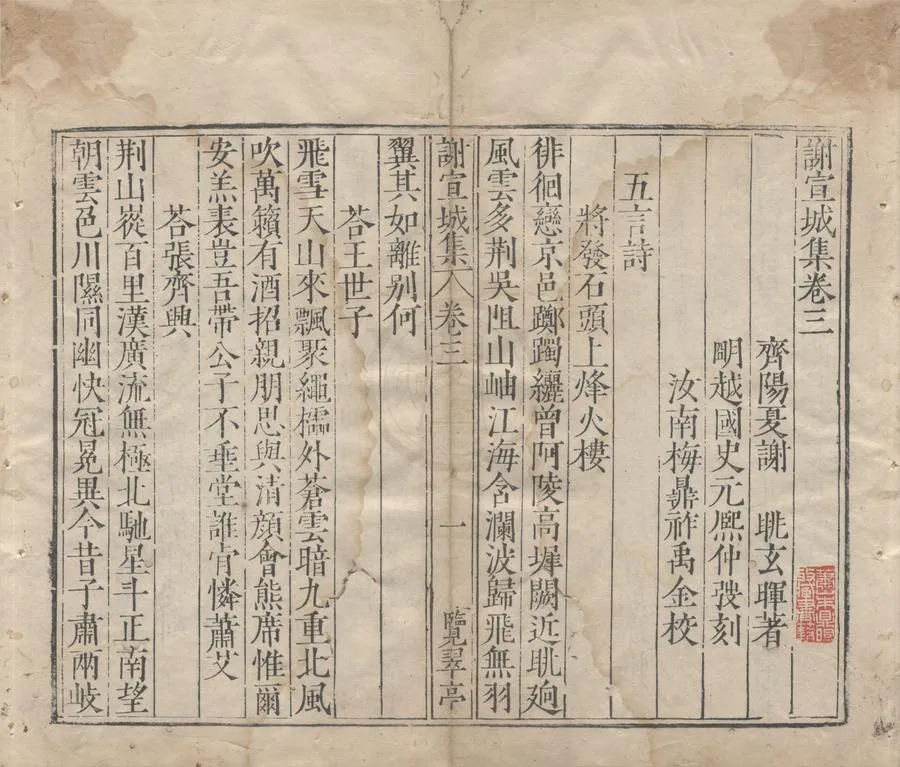 謝宣城集卷三
齊陽夏謝 眺玄暉著
明越國史元熈仲弢刻
汝南梅鼎祚禹金校
五言詩
將發石頭上烽火樓
徘徊戀京邑躑躅纒曾阿陵高墀闕近眺逈
風雲多荆吳阻山岫江海含瀾波歸飛無羽
謝宣城集 卷三 一 覽翠亭
翼其如離别何
荅王世子
飛雪天山來飄聚繩櫺外蒼雲暗九重北風
吹萬籟有酒招親朋思與清顔會熊席惟爾
安羔裘豈吾帶公子不垂堂誰肯憐蕭艾
荅張齊興
荆山嵸百里漢廣流無極北馳星斗正南望
朝雲色川隰同幽快冠冕異今昔子肅兩岐